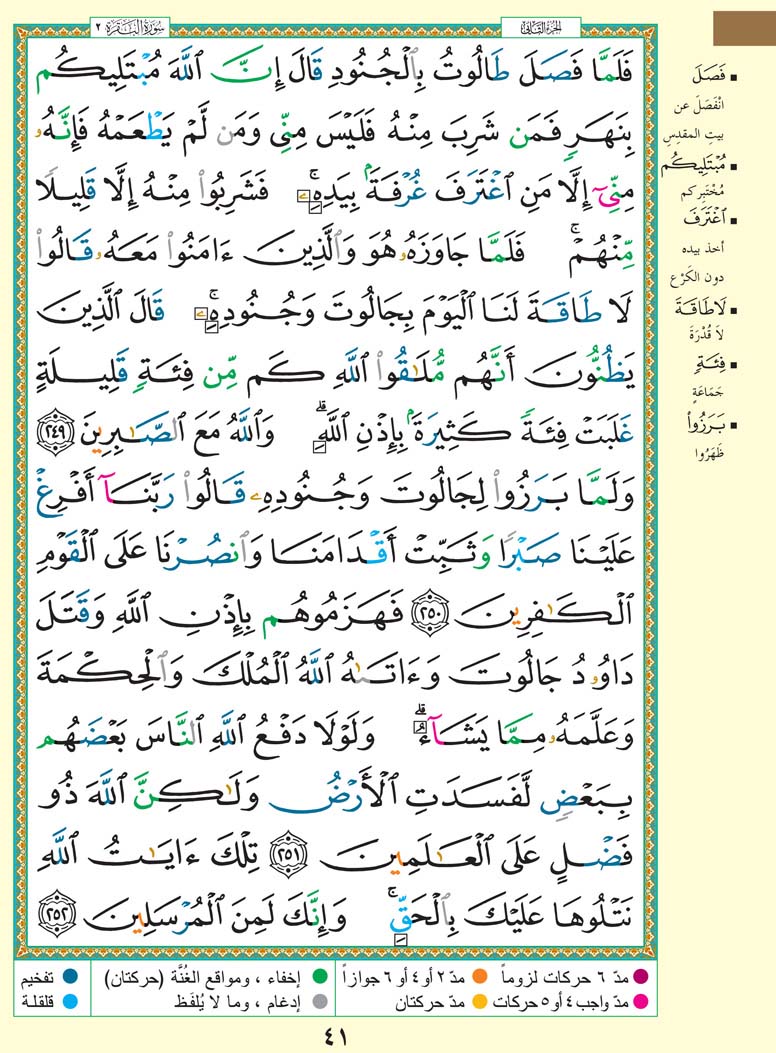 سُورَةُ البَقَرَة ٢
الجُزءُ الثَّانِي
فَلَمَّا فَصَلَ طَالُوتُ بِٱلْجُنُودِ قَالَ إِنَّ ٱللَّهَ مُبْتَلِيكُم
بِنَهَرٍ فَمَن شَرِبَ مِنْهُ فَلَيْسَ مِنِّى وَمَن لَّمْ يَطْعَمْهُ فَإِنَّهُۥ
مِنِّىٓ إِلَّا مَنِ ٱغْتَرَفَ غُرْفَةًۢ بِيَدِهِۦۚ فَشَرِبُوا۟ مِنْهُ إِلَّا قَلِيلًا
مِّنْهُمْۚ فَلَمَّا جَاوَزَهُۥ هُوَ وَٱلَّذِينَ ءَامَنُوا۟ مَعَهُۥ قَالُوا۟
لَا طَاقَةَ لَنَا ٱلْيَوْمَ بِجَالُوتَ وَجُنُودِهِۦۚ قَالَ ٱلَّذِينَ
يَظُنُّونَ أَنَّهُم مُّلَٰقُوا۟ ٱللَّهِ كَم مِّن فِئَةٍ قَلِيلَةٍ
غَلَبَتْ فِئَةً كَثِيرَةًۢ بِإِذْنِ ٱللَّهِۗ وَٱللَّهُ مَعَ ٱلصَّٰبِرِينَ ٢٤٩
وَلَمَّا بَرَزُوا۟ لِجَالُوتَ وَجُنُودِهِۦ قَالُوا۟ رَبَّنَآ أَفْرِغْ
عَلَيْنَا صَبْرًا وَثَبِّتْ أَقْدَامَنَا وَٱنصُرْنَا عَلَى ٱلْقَوْمِ
ٱلْكَٰفِرِينَ ٢٥٠ فَهَزَمُوهُم بِإِذْنِ ٱللَّهِ وَقَتَلَ
دَاوُۥدُ جَالُوتَ وَءَاتَىٰهُ ٱللَّهُ ٱلْمُلْكَ وَٱلْحِكْمَةَ
وَعَلَّمَهُۥ مِمَّا يَشَآءُۗ وَلَوْلَا دَفْعُ ٱللَّهِ ٱلنَّاسَ بَعْضَهُم
بِبَعْضٍ لَّفَسَدَتِ ٱلْأَرْضُ وَلَٰكِنَّ ٱللَّهَ ذُو
فَضْلٍ عَلَى ٱلْعَٰلَمِينَ ٢٥١ تِلْكَ ءَايَٰتُ ٱللَّهِ
نَتْلُوهَا عَلَيْكَ بِٱلْحَقِّۚ وَإِنَّكَ لَمِنَ ٱلْمُرْسَلِينَ ٢٥٢
▪ فَصَلَ
انْفَصَلَ عن
بيتِ المقدِسِ
▪ مُبْتَلِيكُم
مُخْتَبِركم
▪ ٱغْتَرَفَ
أخذ بيده
دون الكَرْع
▪ لَا طَاقَةَ
لا قُدْرَةَ
▪ فِئَةٍ
جَمَاعَةٍ
▪ بَرَزُوا۟
ظَهَرُوا
مدّ ٦ حركات لزوماً ● مدّ ٢ أو ٤ أو ٦ جوازاً ● إخفاء ، ومواقع الغُنَّة (حركتان) ● تفخيم
مدّ واجب ٤ أو ٥ حركات ● مدّ حركتان ● إدغام ، وما لا يُلفَظ ● قلقلة
٤١